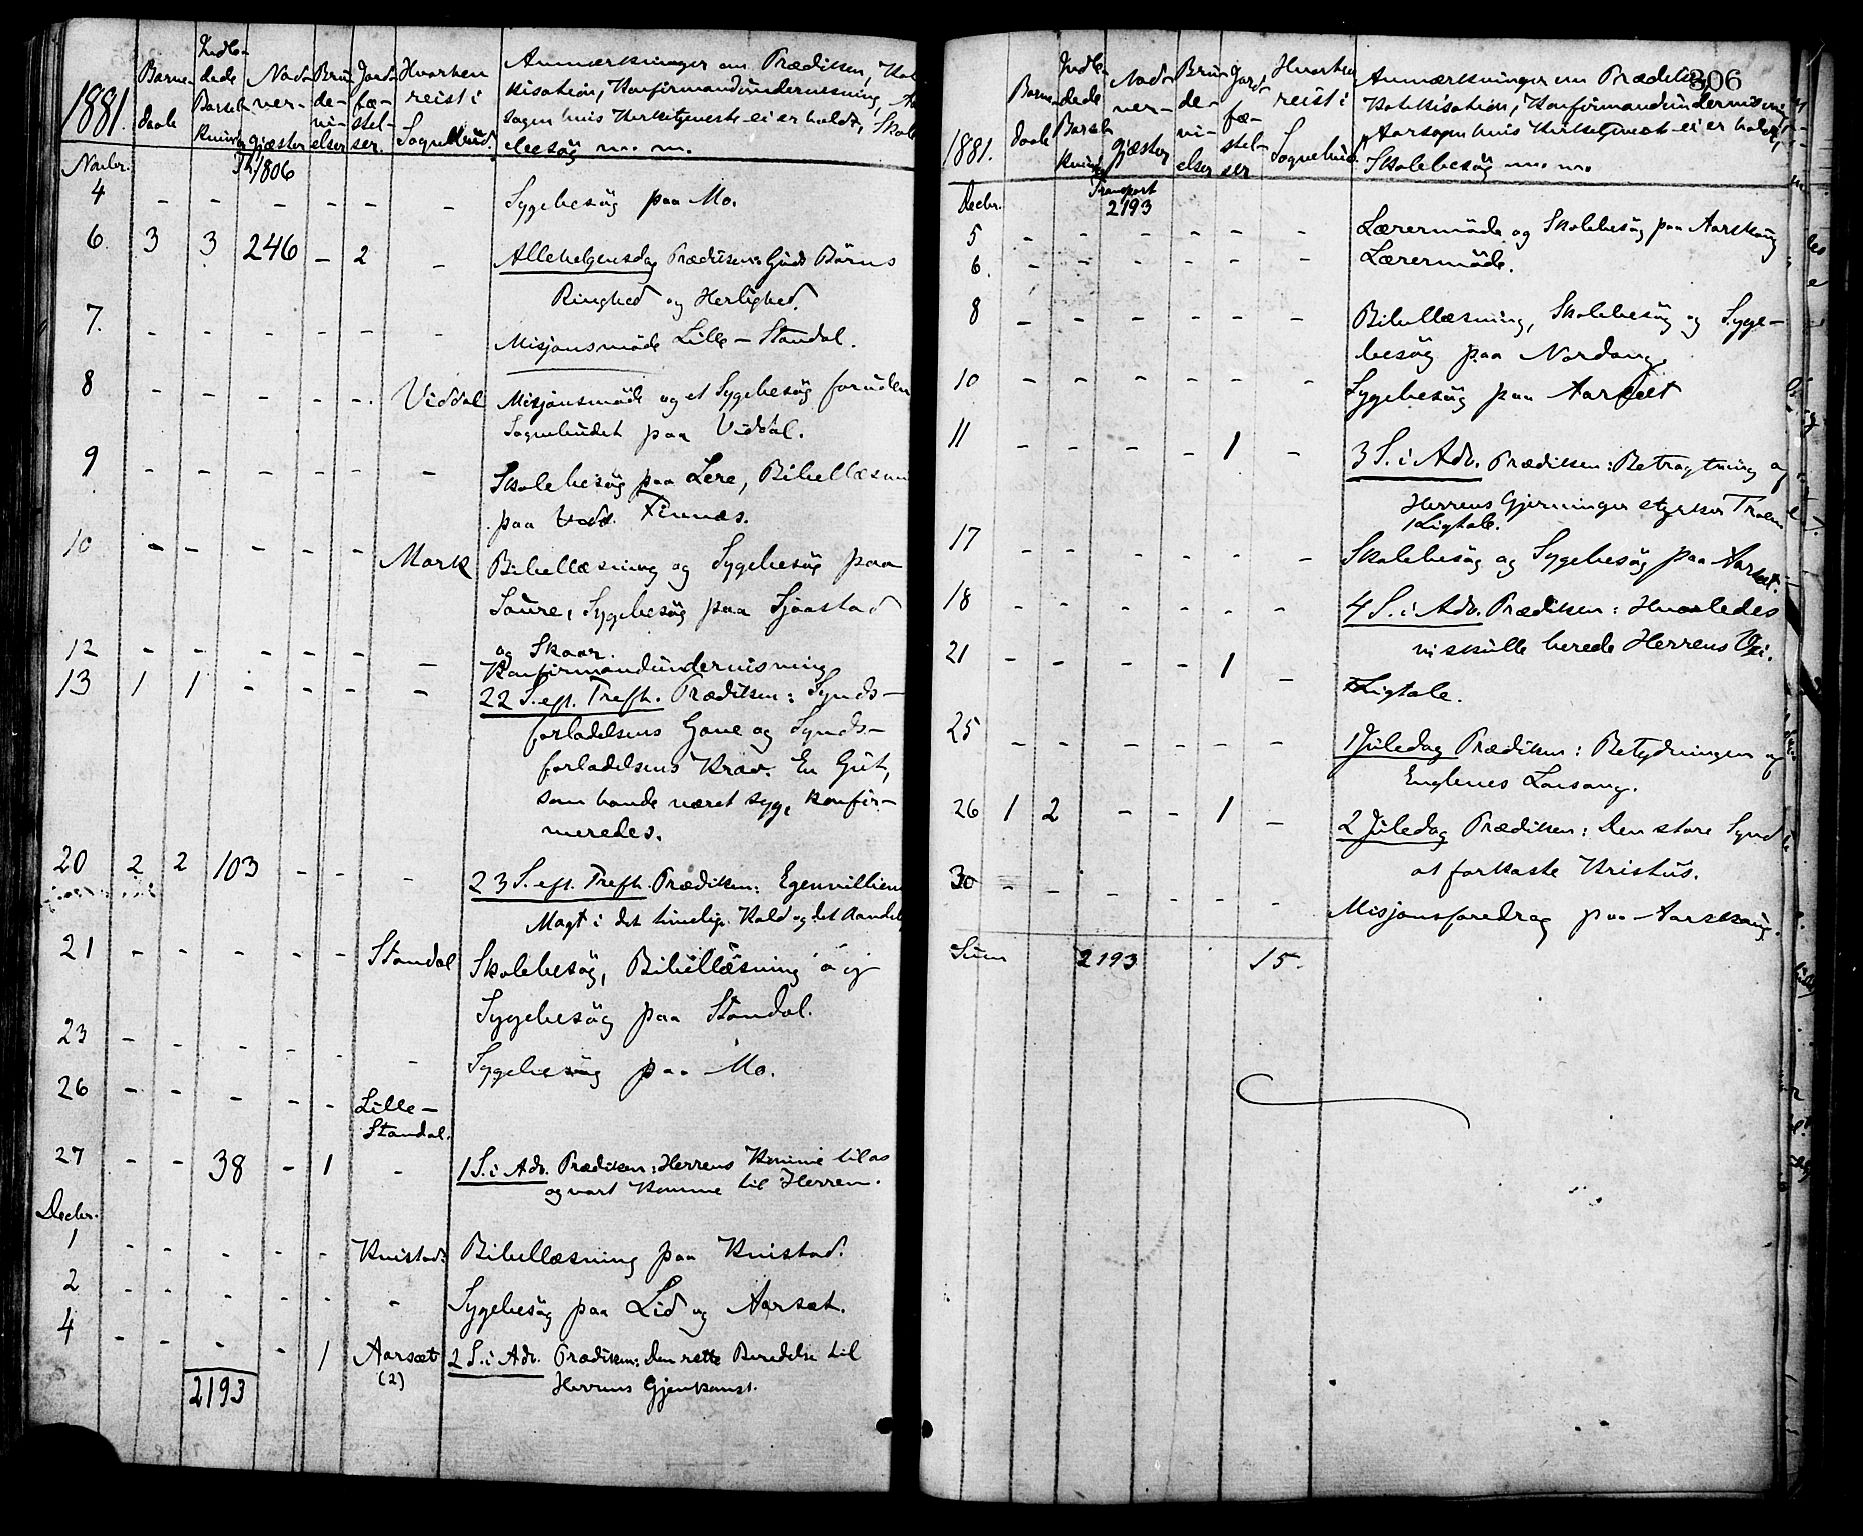 1881.
Barne-
daab
Indle-
dede
Barsel-
kvinder
Nadv-
ver-
gjæster
Bru-
de-
vi-
elser
Jord-
fæ-
stel-
ser.
Hvorhen
reist i
Sognebud.
Anmærkninger om Prædiken, Kat
kisation, Konfirmandundervisning, Aar
sagen hvis Kirketjeneste ei er holdt, Skole
besøg m. m.
Novbr. Tr. 1806
4 - - - - - - Sygebesøg paa Mo.
6. 3 3 246 - 2 - Allehelgensdag Prædiken: Guds Børns
Ringhed og Herlighed.
7. - - - - - - Misjonsmøde Lille-Standal.
8 - - - - - Viddal Misjonsmøde og et Sygebesøg foruden
Sognebudet paa Viddal.
9 - - - - - - Skolebesøg paa Lere, Bibellæsn
paa Finnæs.
10 - - - - - Mork Bibellæsning og Sygebesøg paa
Saure, Sygebesøg paa Sjaastad
og Skaar.
12 - - - - - - Konfirmandundervisning
13 1 1 - - - - 22 S. eft. Trefh. Prædiken: Synds-
forladelsens Gave og Synds-
forladelsens Krav. En Gut,
som havde været syg, konfir-
meredes.
20 2 2 103 - - - 23 S. eft. Trefh. Prædiken: Egenvilliens
Magt i det timelige Kald og det aandel
21 - - - - - Standal Skolebesøg, Bibellæsning og
Sygebesøg paa Standal.
23 - - - - - - Sygebesøg paa Mo.
26 - - - - - Lille-
Standal.
27 - - 38 - 1 - 1 S. i Adv. Prædiken: Herrens Komme til os
og vort Komme til Herren.
Decbr.
1 - - - - - Kvistad. Bibellæsning paa Kvistad.
2 - - - - - - Sygebesøg paa Lid og Aarsæt.
4 - - - - 1 Aarsæt 2 S. i Adv. Prædiken: Den rette Beredelse til
(2) Herrens Gjenkomst.
2193
306
1881.
Barne-
daab
Indle-
dede
Barsel-
kvinder
Nadv-
ver-
gjæster
Bru-
de-
vi-
elser
Jord-
fæ-
stel-
ser
Hvorhen
reist i
Sognebud
Anmærkninger om Prædiken
Katekisation, Konfirmandundervisning
Aarsagen hvis Kirketjeneste ei er holdt,
Skolebesøg m. m.
Decbr. Transport
2193
5 - - - - - - Lærermøde og Skolebesøg paa Aarskoug
6. - - - - - - Lærermøde.
8 - - - - - - Bibellæsning, Skolebesøg og Syge-
besøg paa Nordang.
10 - - - - - - Sygebesøg paa Aarsæt
11 - - - - 1 - 3 S. i Adv. Prædiken: Betragtning af
Herrens Gjerninger styrker Troen
1 Ligtale.
17 - - - - - - Skolebesøg og Sygebesøg paa Aarsæt.
18 - - - - - - 4 S. i Adv. Prædiken: Hvorledes
vi skulle berede Herrens Vei.
21 - - - - 1 - Ligtale.
25 - - - - - - 1 Juledag Prædiken: Betydningen af
Englenes Lovsang.
26 1 2 - - 1 - 2 Juledag Prædiken: Den store Synd
at forkaste Kristus.
30 - - - - - - Misjonsforedrag paa Aarskoug.
Sum 2193 15.